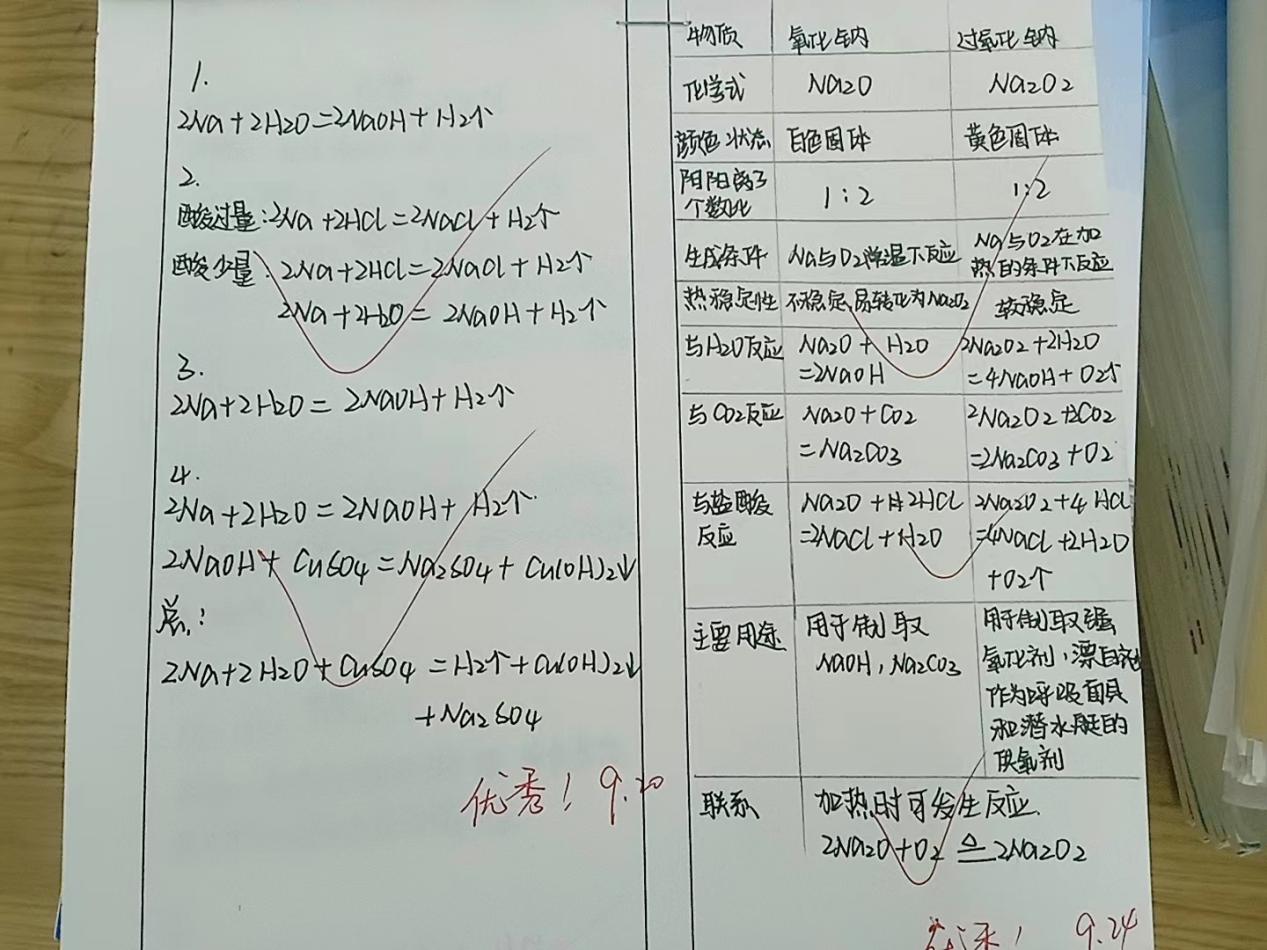 1.
2Na+2H2O=2NaOH+H2↑
2.
酸过量:2Na+2HCl=2NaCl+H2↑
酸少量:2Na+2HCl=2NaCl+H2↑
2Na+2H2O=2NaOH+H2↑
3.
2Na+2H2O=2NaOH+H2↑
4.
2Na+2H2O=2NaOH+H2↑.
2NaOH+CuSO4=Na2SO4+Cu(OH)2↓
总:
2Na+2H2O+CuSO4=H2↑+Cu(OH)2↓
+Na2SO4
优秀! 9.20
物质 氧化钠 过氧化钠
化学式 Na2O Na2O2
颜色状态 白色固体 黄色固体
阴阳离子
个数比 1:2 1:2
生成条件 Na与O2常温下反应 Na与O2在加
热的条件下反应
热稳定性 不稳定,易转化为Na2O2 较稳定
与H2O反应 Na2O+H2O
=2NaOH
2Na2O2+2H2O
=4NaOH+O2↑
与CO2反应 Na2O+CO2
=Na2CO3
2Na2O2+2CO2
=2Na2CO3+O2
与盐酸
反应
Na2O+2HCl
=2NaCl+H2O
2Na2O2+4HCl
=4NaCl+2H2O
+O2↑
主要用途 用于制取
NaOH,Na2CO3
用于制取强
氧化剂,漂白剂
作为呼吸面具
和潜水艇的
供氧剂
联系 加热时可发生反应.
2Na2O+O2≜2Na2O2
优秀! 9.24